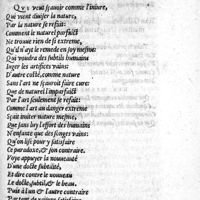 QVI veut sçavoir comme l'iniure,
Qui vient d'user la nature,
Par la nature se refait:
Comment le naturel parfaict
Ne trouue rien de si extreme,
Qu'il n'ayt le remede en soy mesme:
Qui voudra des subtils humains
Iuger les artifices vains:
D'autre costé, comme nature
Sans l'art ne sçauroit faire cure:
Que de naturel imparfaict
Par l'art seulement se refait:
Comme l'art au danger extreme
Sçait imiter nature mesme,
Et que sans luy l'effort des humains
N'enfante que des songes vains:
Qu'on lise pour y satisfaire
Ce paradoxe, & son contraire.
Voye appuyer la nouueauté
D'une docte subtilité,
Et dire contre le nouueau
Le docte subtil & le beau.
Puis à l'un & l'autre contraire